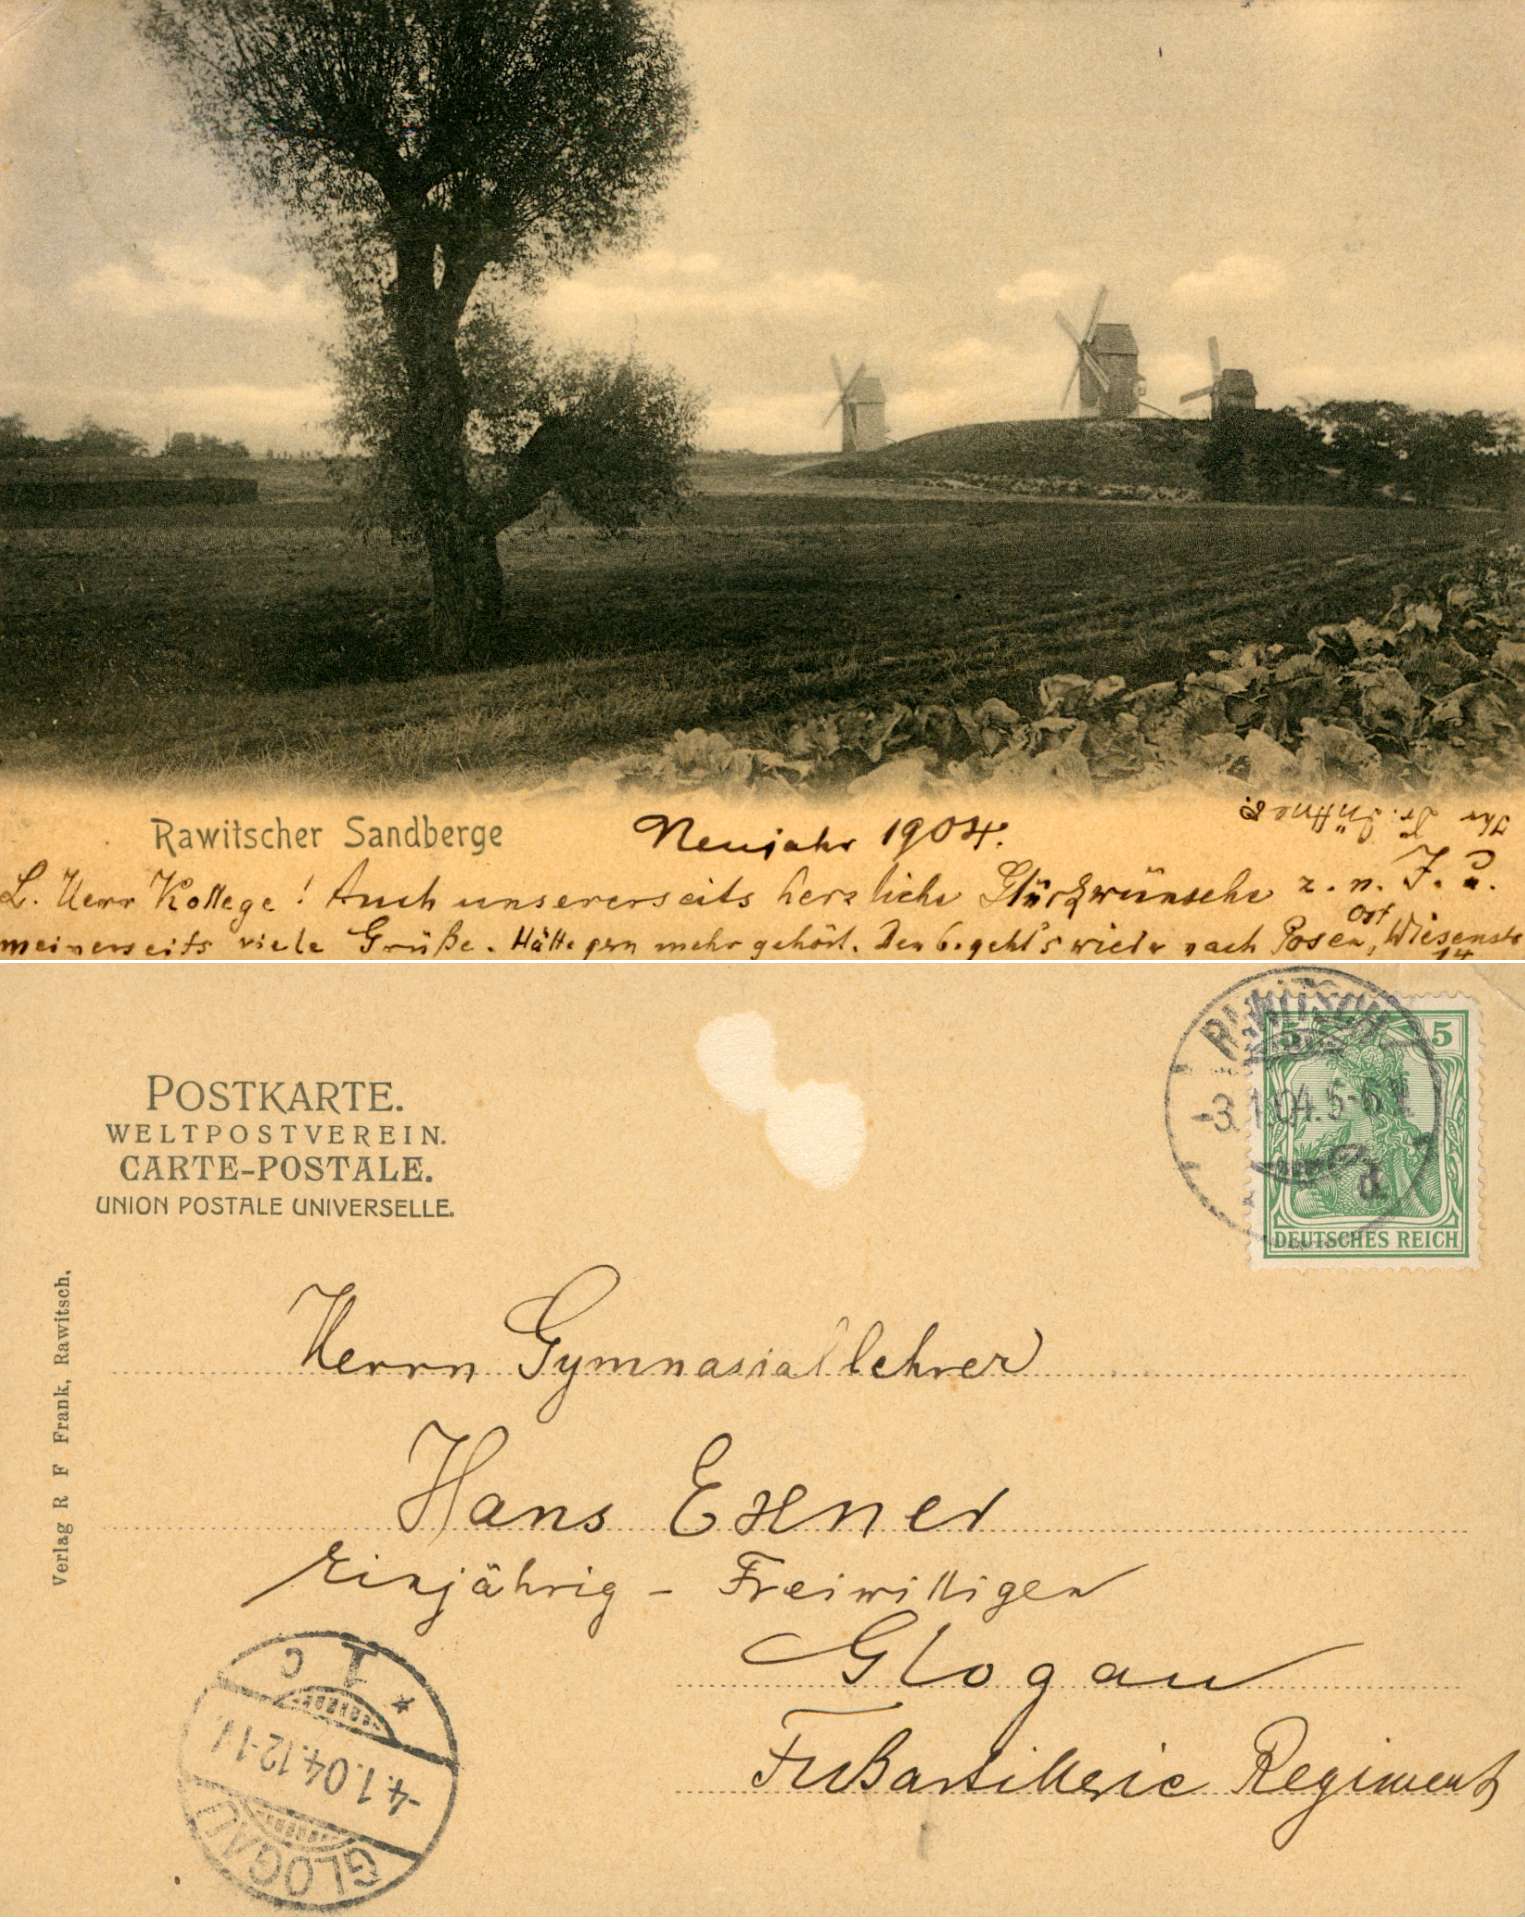 Rawitscher Sandberge
Neujahr 1904.
L. Herr Kollege! Auch unsererseits herzliche Glückwünsche z. n. J. u.
meinerseits viele Grüße. Hätte gern mehr gehört. Den 6. geht's wieder nach Posen, Ost Wiesenstr
14
Ihr Fr.
POSTKARTE.
WELTPOSTVEREIN.
CARTE-POSTALE.
UNION POSTALE UNIVERSELLE.
RAWITSCH
-3.1.04.5-6N
d
5
DEUTSCHES REICH
Verlag R F Frank, Rawitsch.
Herrn Gymnasiallehrer
Hans Exner
Einjährig - Freiwilligen
Glogau
Fußartillerie Regiment
GLOGAU
-4.1.04.12-1
* 1 c